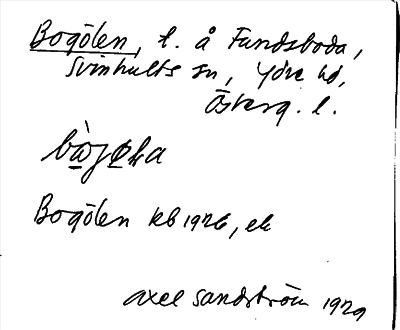 Bogölen, t. å Fundsboda,
Svinhults sn, Ydre hd,
Österg. l.
Bogölen kb 1926, ek
Axel Sandström 1929